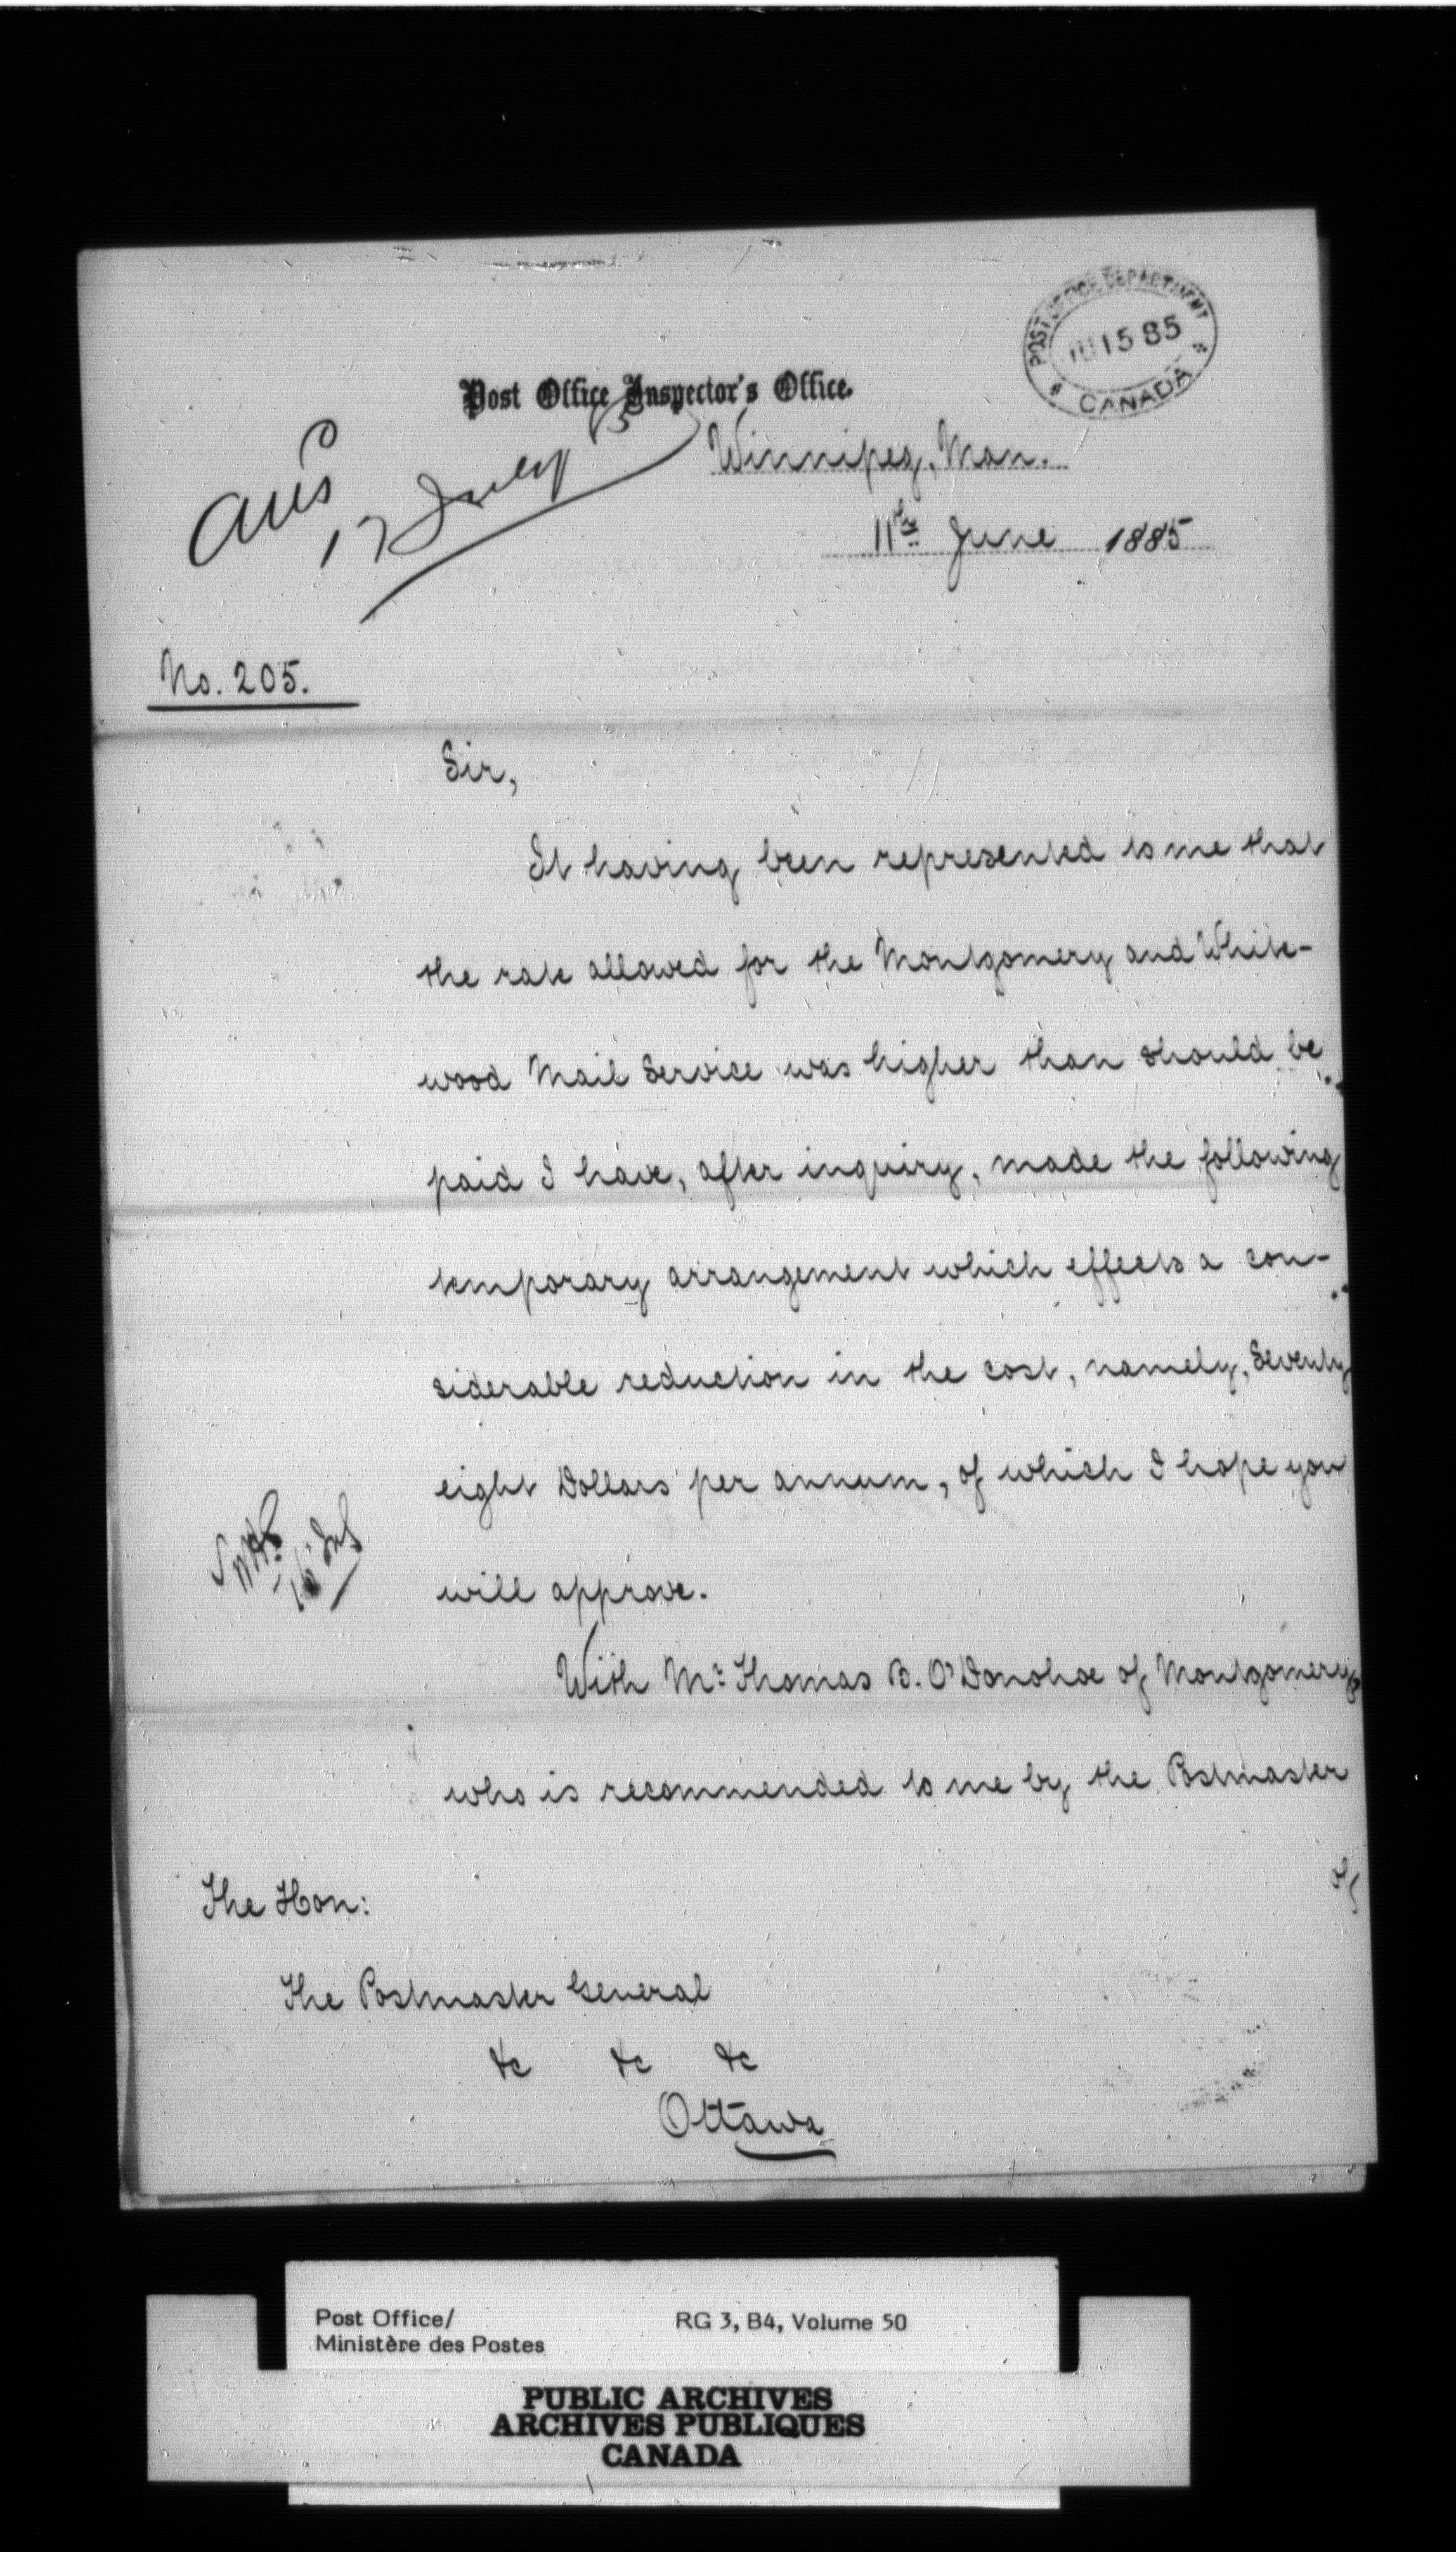 POST OFFICE DEPARTMENT
15 85
CANADA
Post Office Inspector's Office.
Winnipeg, Man.
11th June 1885
ans
17 July
No. 205.
Sir,
It having been represented to me that
the rate allowed for the Montgomery and White-
wood Mail Service was higher than should be
paid I have, after inquiry, made the following
temporary arrangement which effects a con-
siderable reduction in the cost, namely, Seventy
eight Dollars per annum, of which I hope you
will approve.
With Mr: Thomas B. O'Donohoe of Montgomery
who is recommended to me by the Postmaster
of
The Hon:
The Postmaster General
&c &c &c
Ottawa
Post Office/
Ministère des Postes
RG 3, B4, Volume 50
PUBLIC ARCHIVES
ARCHIVES PUBLIQUES
CANADA